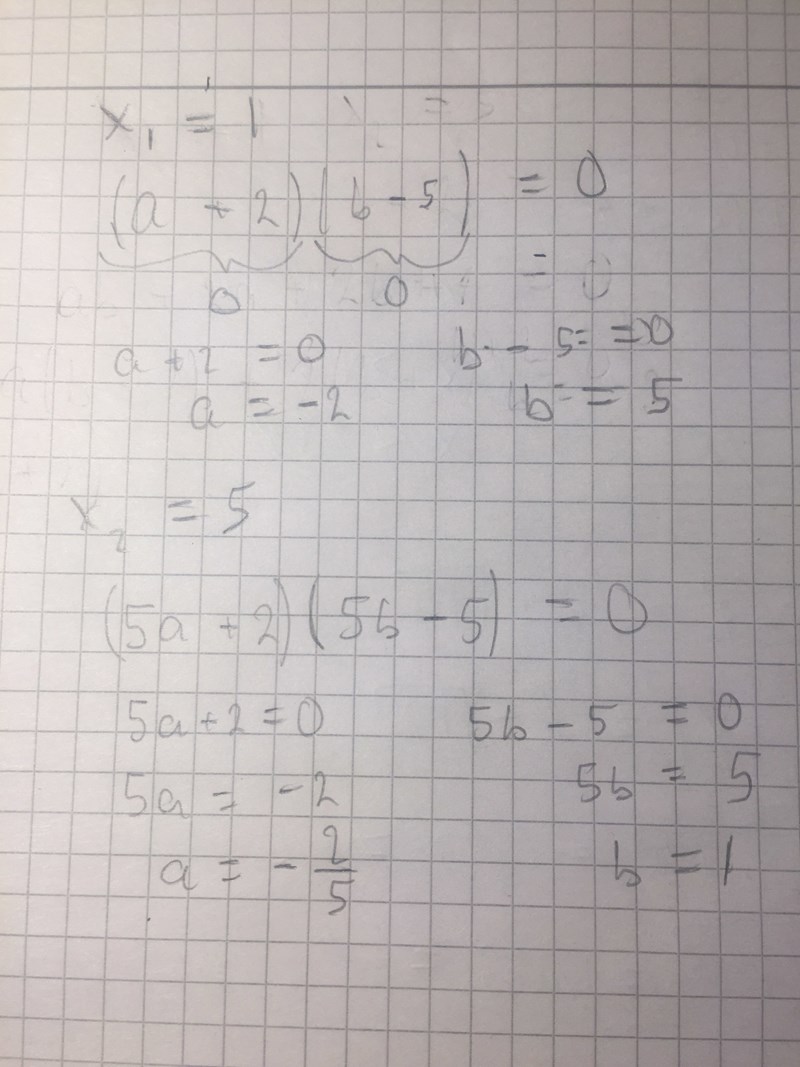 x₁ = 1
(a + 2)(b - 5) = 0
0 0
a + 2 = 0 b - 5 = 0
a = -2 b = 5
x₂ = 5
(5a + 2)(5b - 5) = 0
5a + 2 = 0 5b - 5 = 0
5a = -2 5b = 5
a = -2/5 b = 1